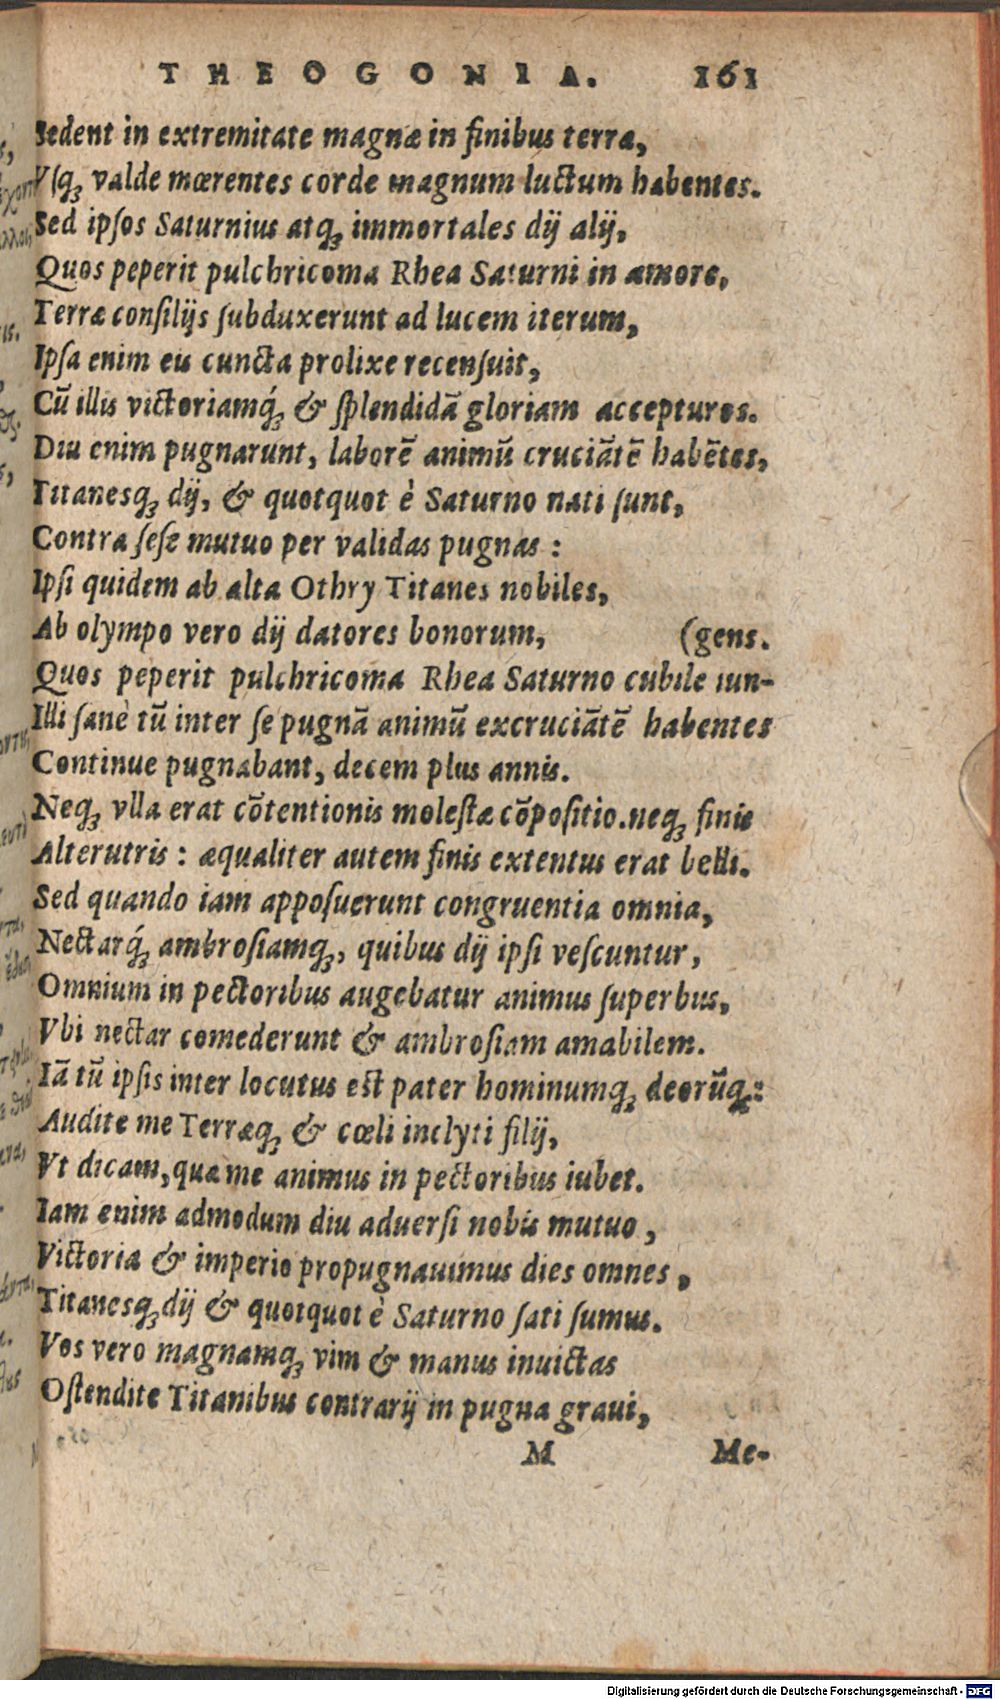 THEOGONIA. 161
Sedent in extremitate magnæ in finibus terræ,
Vsq́; valde mœrentes corde magnum luctum habentes.
Sed ipsos Saturnius atq; immortales dij alij,
Quos peperit pulchricoma Rhea Saturni in amore,
Terræ consilijs subduxerunt ad lucem iterum,
Ipsa enim eis cuncta prolixe recensuit,
Cū illis victoriamq́; & splendidā gloriam accepturos.
Diu enim pugnarunt, laborē animū cruciātē habētes,
Titanesq; dij, & quotquot è Saturno nati sunt,
Contra sese mutuo per validas pugnas :
Ipsi quidem ab alta Othry Titanes nobiles,
Ab olympo vero dij datores bonorum, (gens.
Quos peperit pulchricoma Rhea Saturno cubile iun-
Illi sanè tū inter se pugnā animū excruciātē habentes
Continue pugnabant, decem plus annis.
Neq; vlla erat cōtentionis molestæ cōpositio.neq; finis
Alterutris : æqualiter autem finis extentus erat belli.
Sed quando iam apposuerunt congruentia omnia,
Nectarq́; ambrosiamq;, quibus dij ipsi vescuntur,
Omnium in pectoribus augebatur animus superbus,
Vbi nectar comederunt & ambrosiam amabilem.
Iā tū ipsis inter locutus est pater hominumq; deorūq;:
Audite me Terræq; & cœli inclyti filij,
Vt dicam, quæ me animus in pectoribus iubet.
Iam enim admodum diu aduersi nobis mutuo ,
Victoria & imperio propugnauimus dies omnes ,
Titanesq; dij & quotquot è Saturno sati sumus.
Vos vero magnamq; vim & manus inuictas
Ostendite Titanibus contrarij in pugna graui,
M Me-
Digitalisierung gefördert durch die Deutsche Forschungsgemeinschaft - DFG